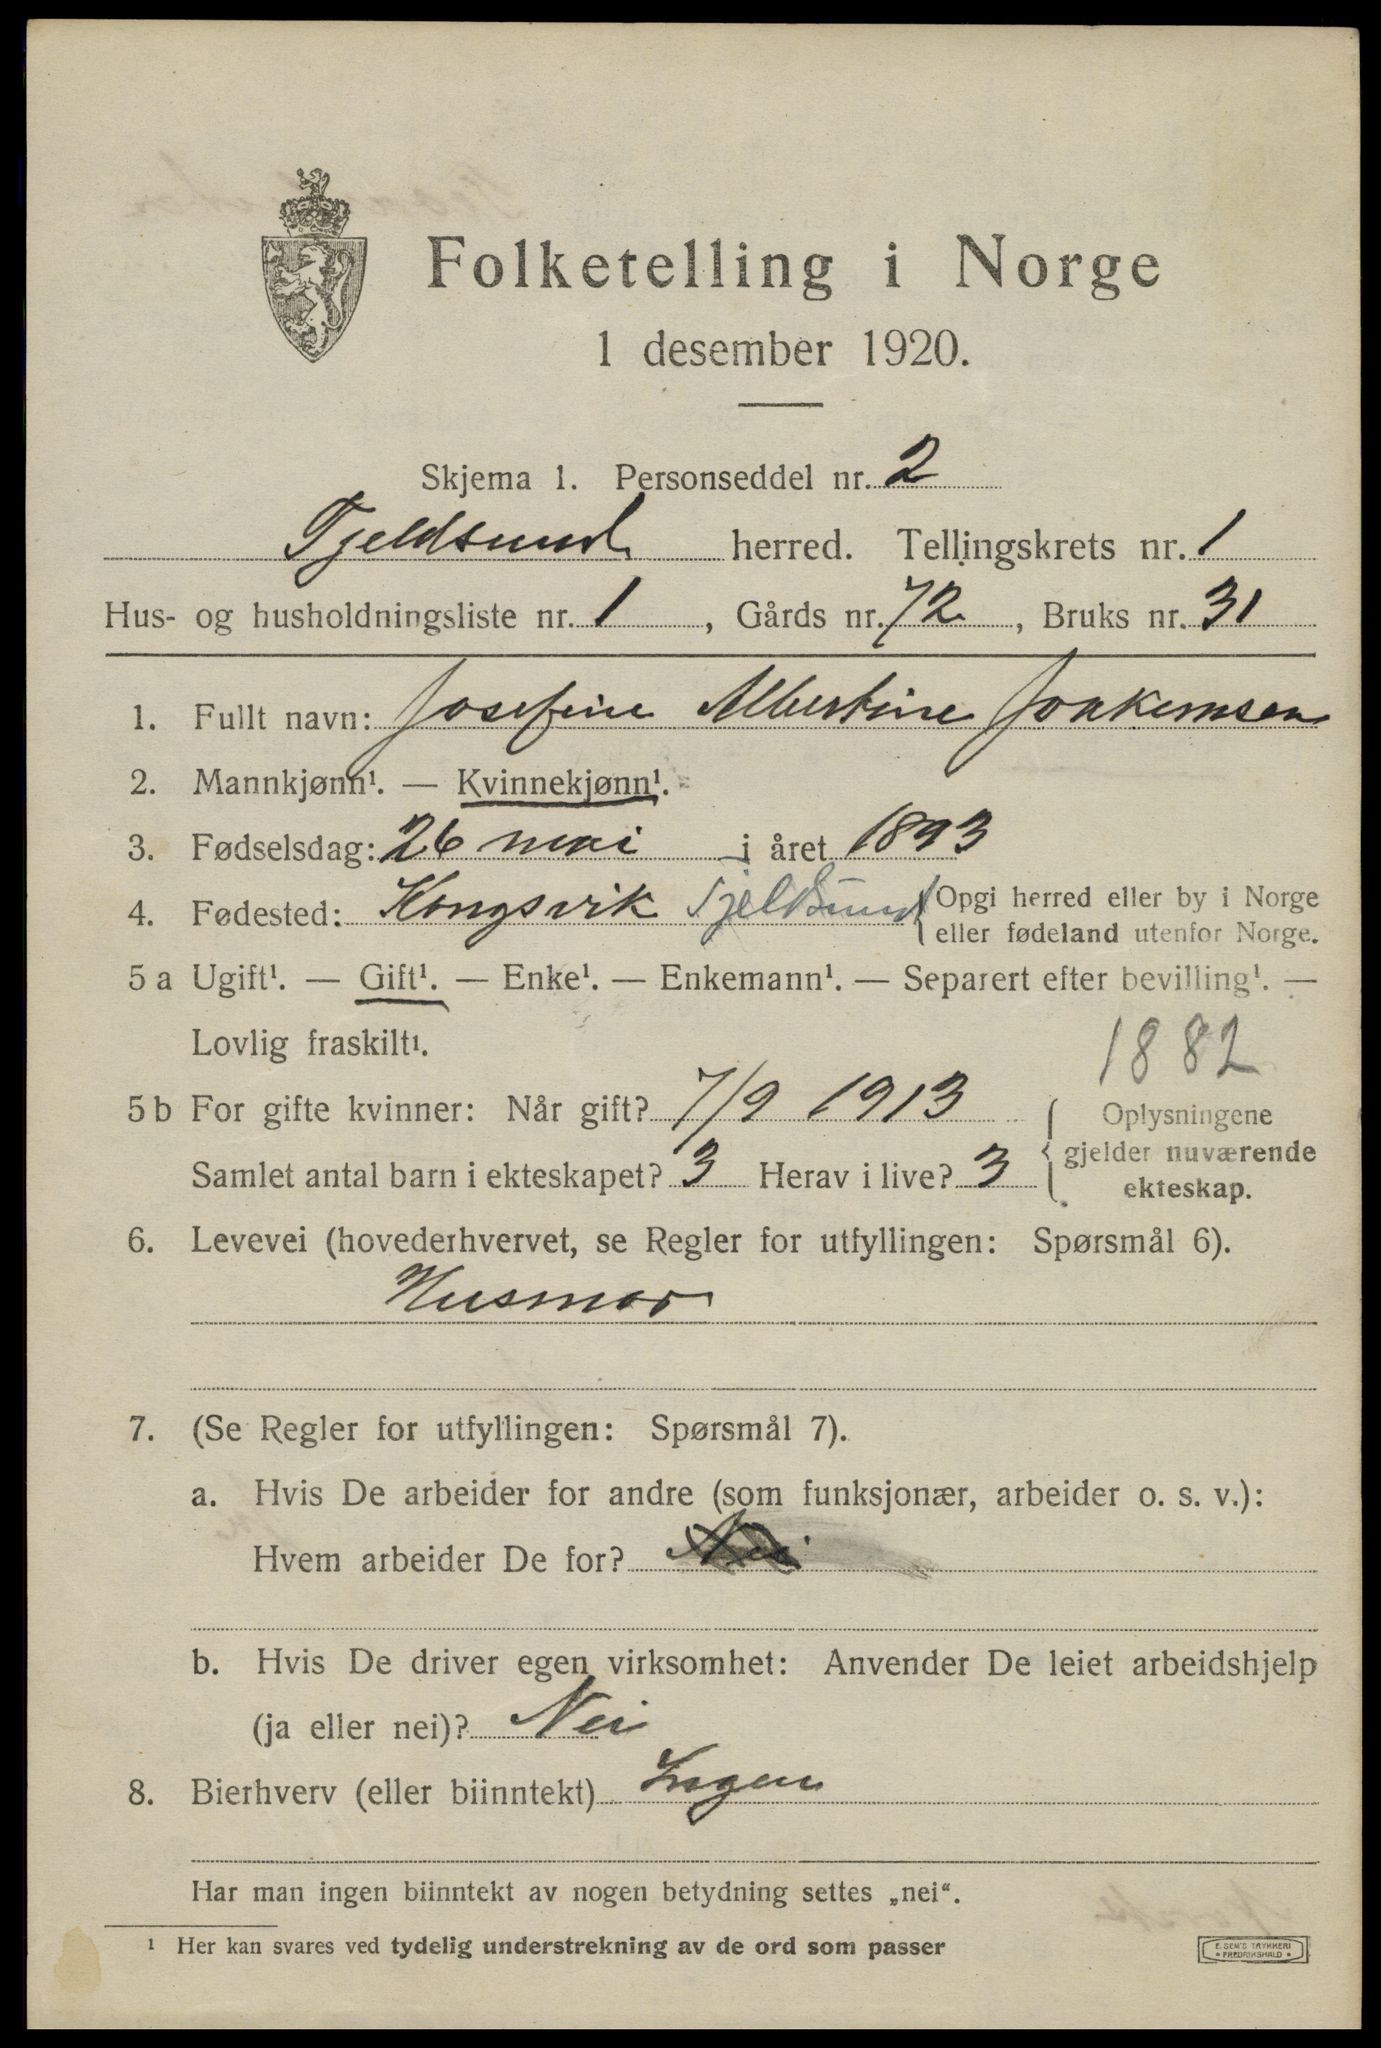 Folketelling i Norge
1 desember 1920.
Skjema 1. Personseddel nr. 2
Tjeldsund herred. Tellingskrets nr. 1
Hus- og husholdningsliste nr. 1, Gårds nr. 72, Bruks nr. 31
1. Fullt navn: Josefine Albertine Joakimsen
2. Mannkjønn¹. — Kvinnekjønn¹.
3. Fødselsdag: 26 mai i året 1893
4. Fødested: Kongsvik Tjeldsund { Opgi herred eller by i Norge
eller fødeland utenfor Norge.
5 a Ugift¹. — Gift¹. — Enke¹. — Enkemann¹. — Separert efter bevilling¹. —
Lovlig fraskilt¹.
1882
5 b For gifte kvinner: Når gift? 7/9 1913 { Oplysningene
gjelder nuværende
Samlet antal barn i ekteskapet? 3 Herav i live? 3
ekteskap.
6. Levevei (hovederhvervet, se Regler for utfyllingen: Spørsmål 6).
Husmor
7. (Se Regler for utfyllingen: Spørsmål 7).
a. Hvis De arbeider for andre (som funksjonær, arbeider o. s. v.):
Hvem arbeider De for? Nei
b. Hvis De driver egen virksomhet: Anvender De leiet arbeidshjelp
(ja eller nei)? Nei
8. Bierhverv (eller biinntekt) Ingen
Har man ingen biinntekt av nogen betydning settes „nei“.
¹ Her kan svares ved tydelig understrekning av de ord som passer
E. SEM'S TRYKKERI
FREDRIKSHALD